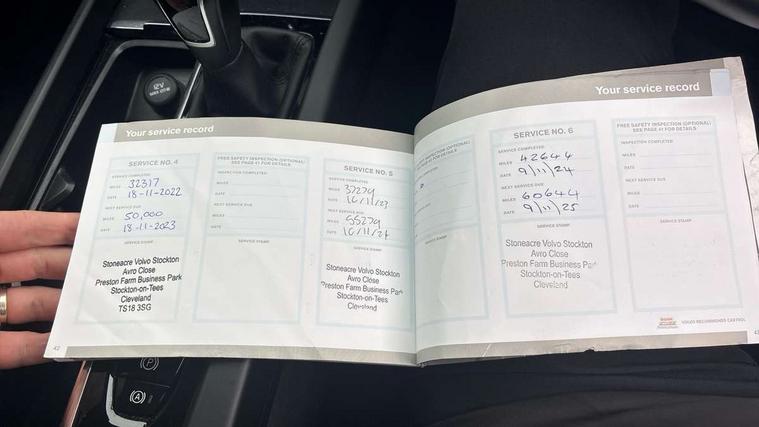 12V
Your service record
SERVICE NO. 4
SERVICE COMPLETED
MILES 32317
DATE 18-11-2022
NEXT SERVICE DUE
MILES 50,000
DATE 18-11-2023
SERVICE STAMP
Stoneacre Volvo Stockton
Avro Close
Preston Farm Business Park
Stockton-on-Tees
Cleveland
TS18 3SG
42
FREE SAFETY INSPECTION (OPTIONAL)
SEE PAGE 41 FOR DETAILS
INSPECTION COMPLETED
MILES
DATE
NEXT SERVICE DUE
MILES
DATE
SERVICE STAMP
SERVICE NO. 5
SERVICE COMPLETED
MILES 37279
DATE 16/11/23
NEXT SERVICE DUE
MILES 55279
DATE 16/11/24
SERVICE STAMP
Stoneacre Volvo Stockton
Avro Close
Preston Farm Business Park
Stockton-on-Tees
Cleveland
Your service record
SERVICE NO. 6
SERVICE COMPLETED
MILES 42644
DATE 9/11/24
NEXT SERVICE DUE
MILES 60644
DATE 9/11/25
SERVICE STAMP
Stoneacre Volvo Stockton
Avro Close
Preston Farm Business Park
Stockton-on-Tees
Cleveland
FREE SAFETY INSPECTION (OPTIONAL)
SEE PAGE 41 FOR DETAILS
INSPECTION COMPLETED
MILES
DATE
NEXT SERVICE DUE
MILES
DATE
SERVICE STAMP
VOLVO RECOMMENDS CASTROL
(P)
(A)